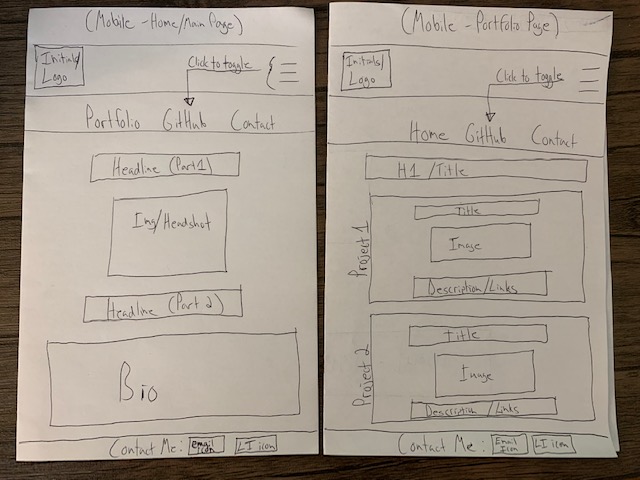 (Mobile - Home/Main Page)
Initials/
Logo
Click to toggle
Portfolio GitHub Contact
Headline (Part 1)
Img/Headshot
Headline (Part 2)
Bio
Contact Me: email icon LI icon
(Mobile - Portfolio Page)
Initials/
Logo
Click to toggle
Home GitHub Contact
H1 /Title
Project 1
Title
Image
Description/Links
Project 2
Title
Image
Description /Links
Contact Me: Email Icon LI icon